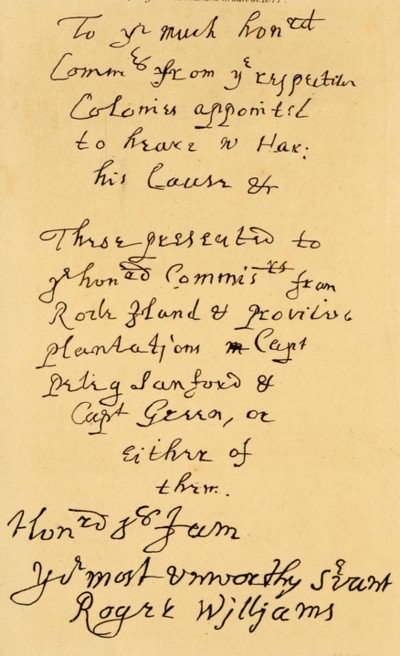 To yr much honrd
Commrs from ye respective
Colonies appointed
to heare W Har:
his Cause &c
These presented to
ye honrd Commisrs from
Rode Iland & Providec
plantations Capt
Peleg Sanford &
Capt Green, or
either of
them.
Honrd Srs I am
Yor most unworthy Servant
Roger Williams